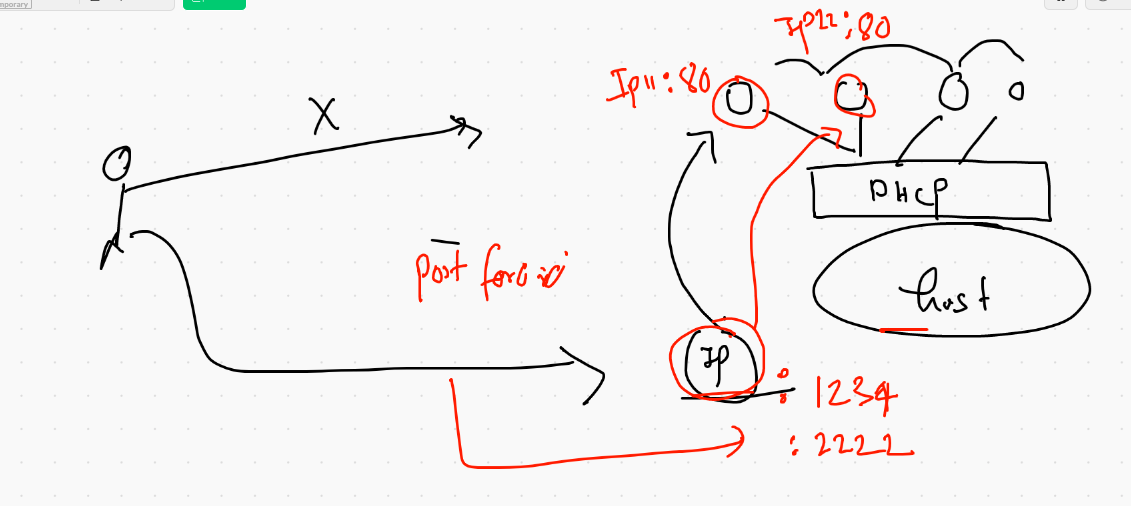 mporary
IP22:80
IP11:80
X
DHCP
Port
host
IP
:1234
:2222